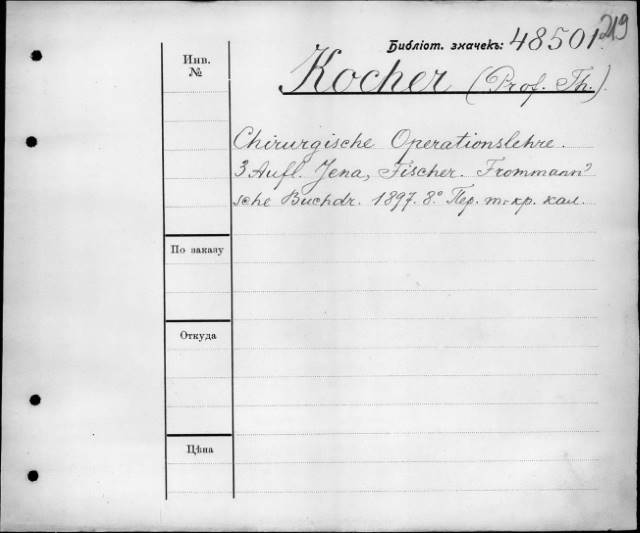 219
Библіот. значекъ: 48501
Инв.
№
Kocher (Prof. Th.).
Chirurgische Operationslehre.
3 Aufl. Jena, Fischer. Frommann'
sche Buchdr. 1897. 8° Пер. т-кр. кал.
По заказу
Откуда
Цѣна